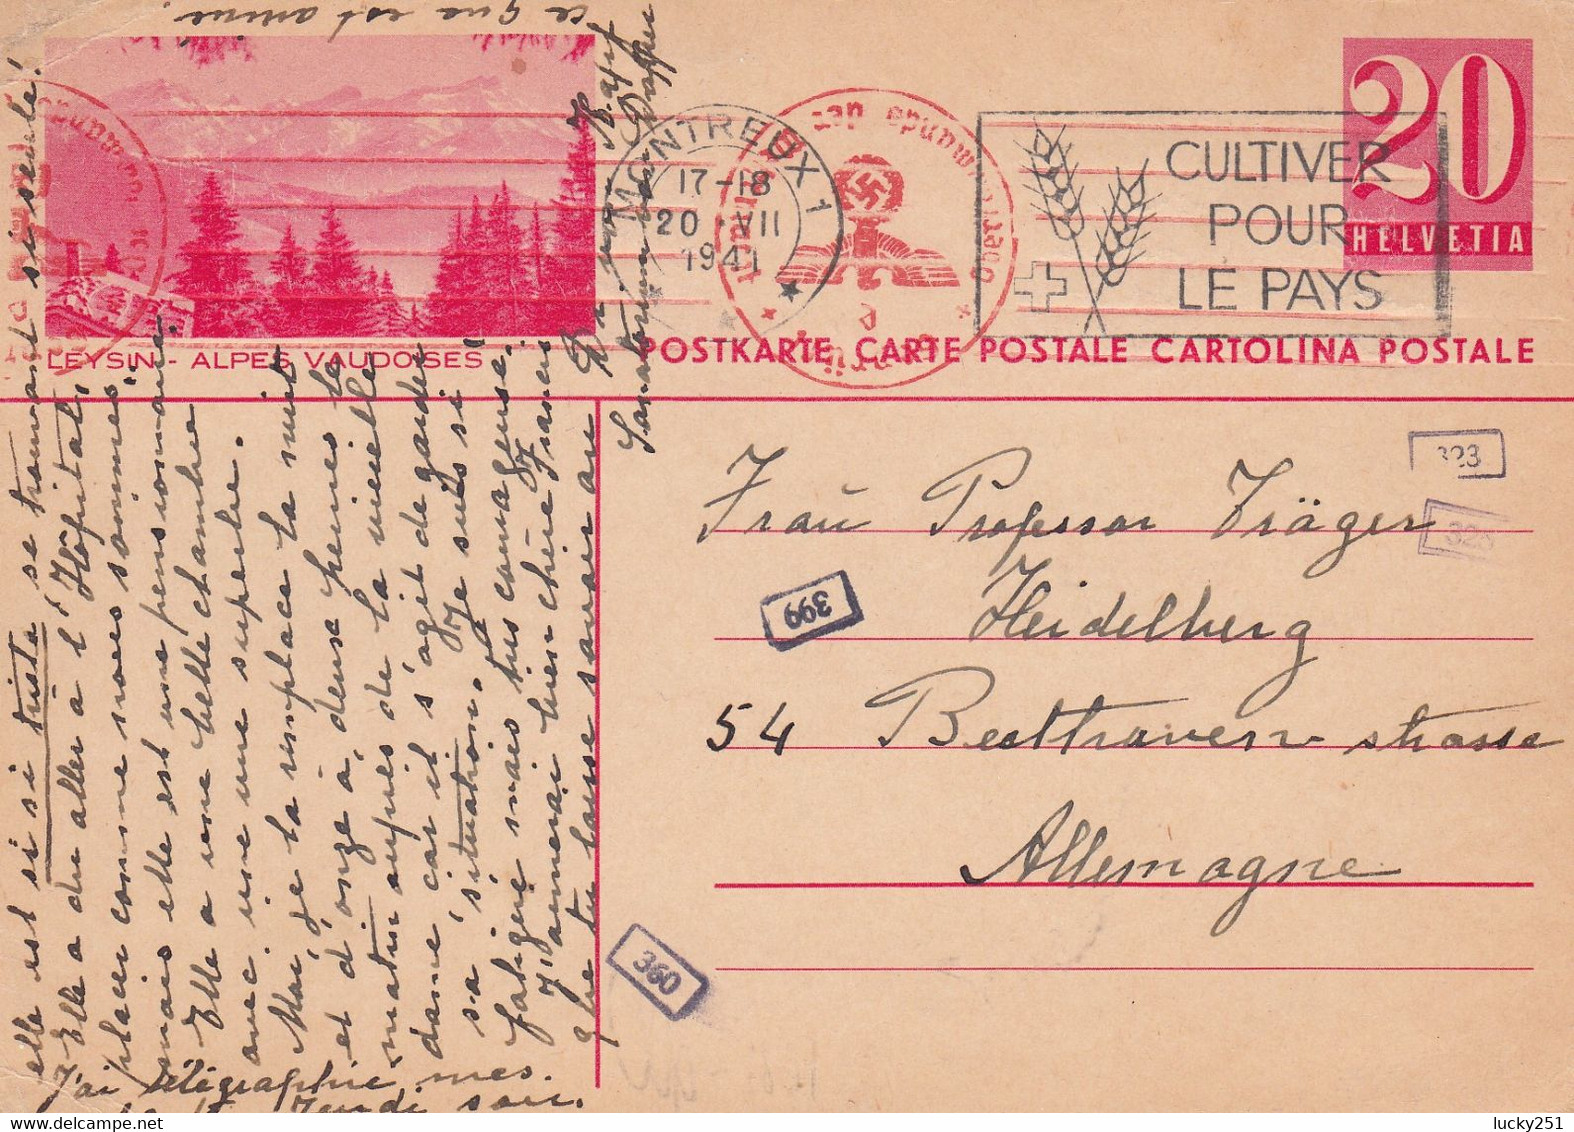 ce que est arrivé.
20
HELVETIA
MONTREUX 1
17-18
20 · VII
1941
CULTIVER
POUR
LE PAYS
LEYSIN - ALPES VAUDOISES
POSTKARTE CARTE POSTALE CARTOLINA POSTALE
323
325
399
360
Frau Professor Träger
Heidelberg
54 Beethoven-strasse
Allemagne
elle est si si triste, se trouvant si seule!
Elle a dû aller à l'Hôpital,
placée comme nous sommes
mais elle est une pensionnaire.
Elle a une belle chambre
avec une vue superbe.
Moi, je la remplace la nuit
et d'onze à deux heures le
matin auprès de la vieille
dame car il s'agit de garder
sa situation. Je suis si
fatiguée mais très courageuse.
J'aimerai bien chère Francis
que tu laisse savoir au
Sanatorium
J'ai télégraphié mes.
Jeudi soir.
lucky251